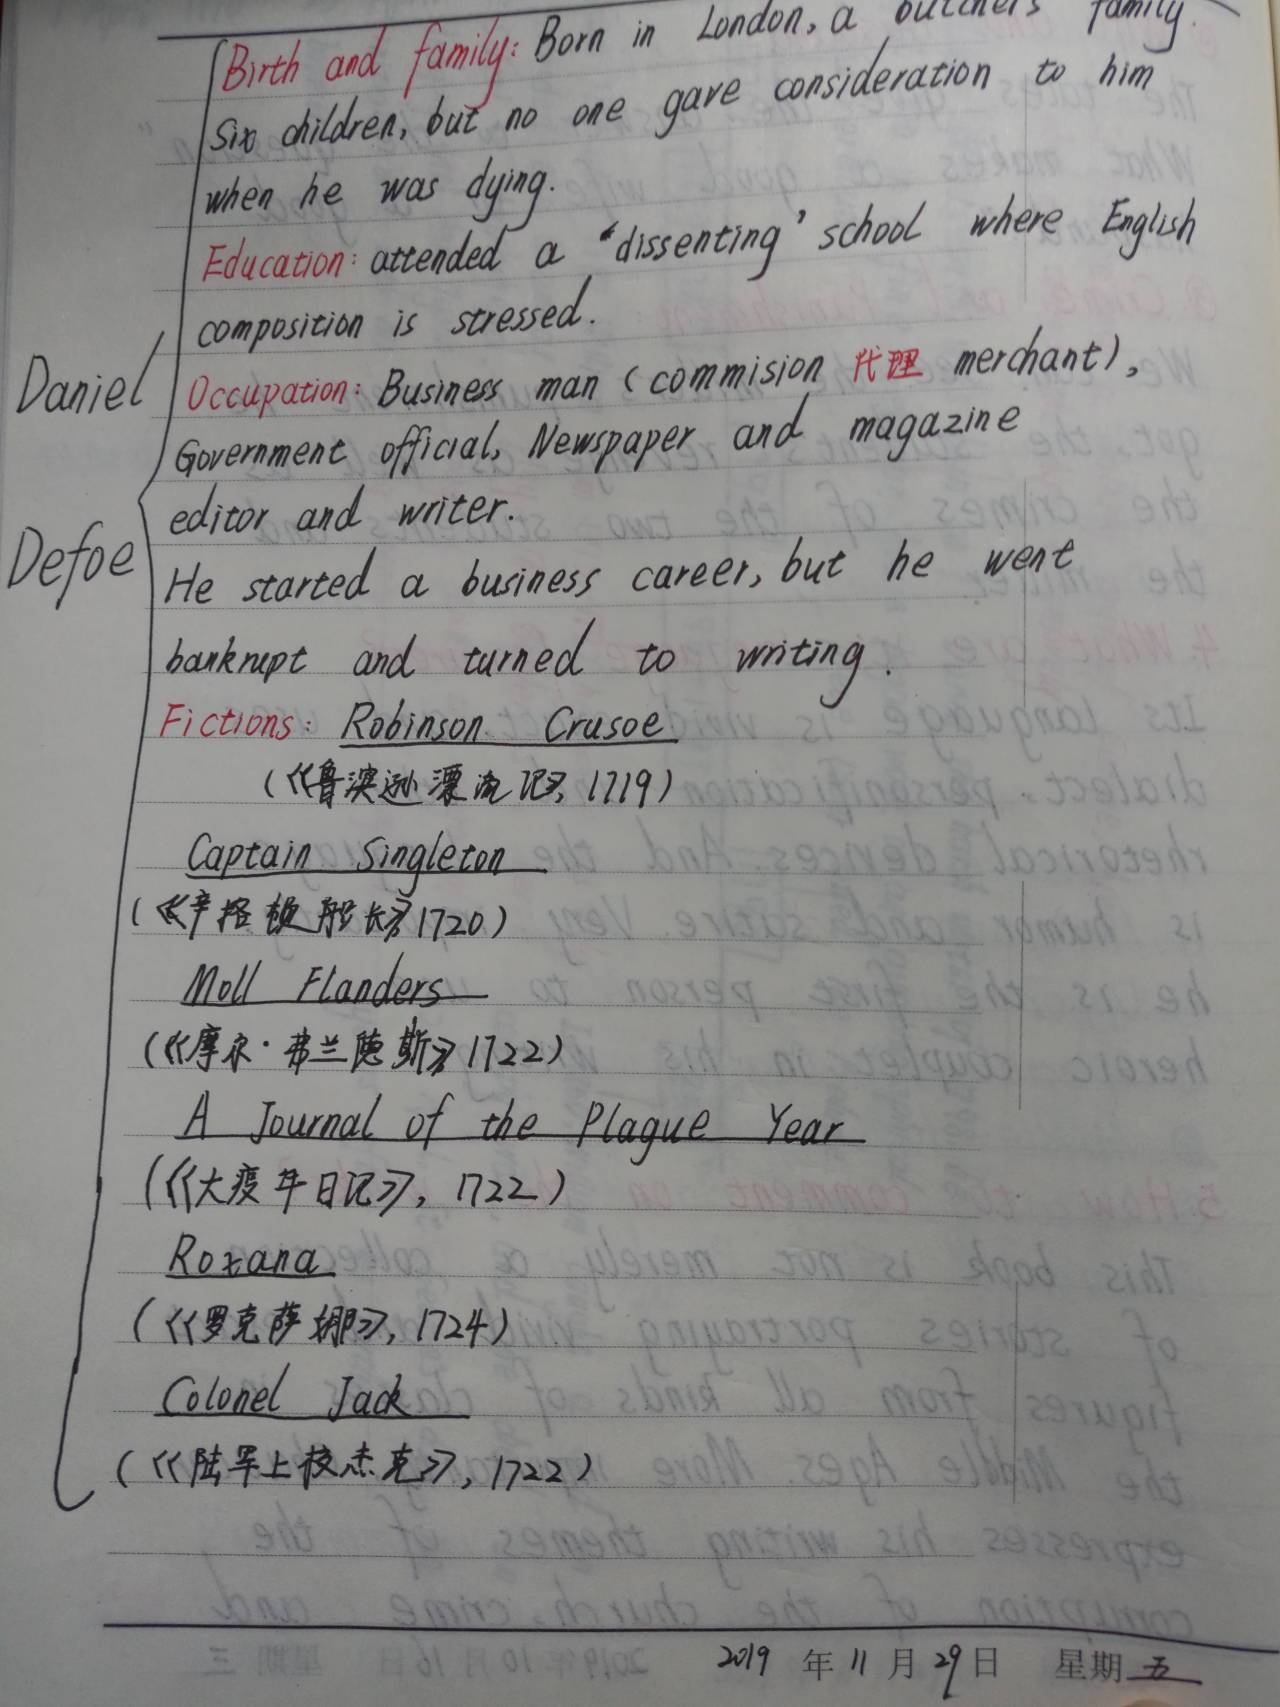 Birth and family: Born in London, a butcher's family.
Six children, but no one gave consideration to him
when he was dying.
Education: attended a "dissenting" school where English
composition is stressed.
Daniel
Defoe
Occupation: Business man (commision 代理 merchant),
Government official, Newspaper and magazine
editor and writer.
He started a business career, but he went
bankrupt and turned to writing.
Fictions: Robinson Crusoe
(《鲁滨逊漂流记》, 1719)
Captain Singleton
(《辛格顿船长》1720)
Moll Flanders
(《摩尔·弗兰德斯》1722)
A Journal of the Plague Year
(《大疫年日记》, 1722)
Roxana
(《罗克萨娜》, 1724)
Colonel Jack
(《陆军上校杰克》, 1722)
2019 年 11 月 29 日 星期 五